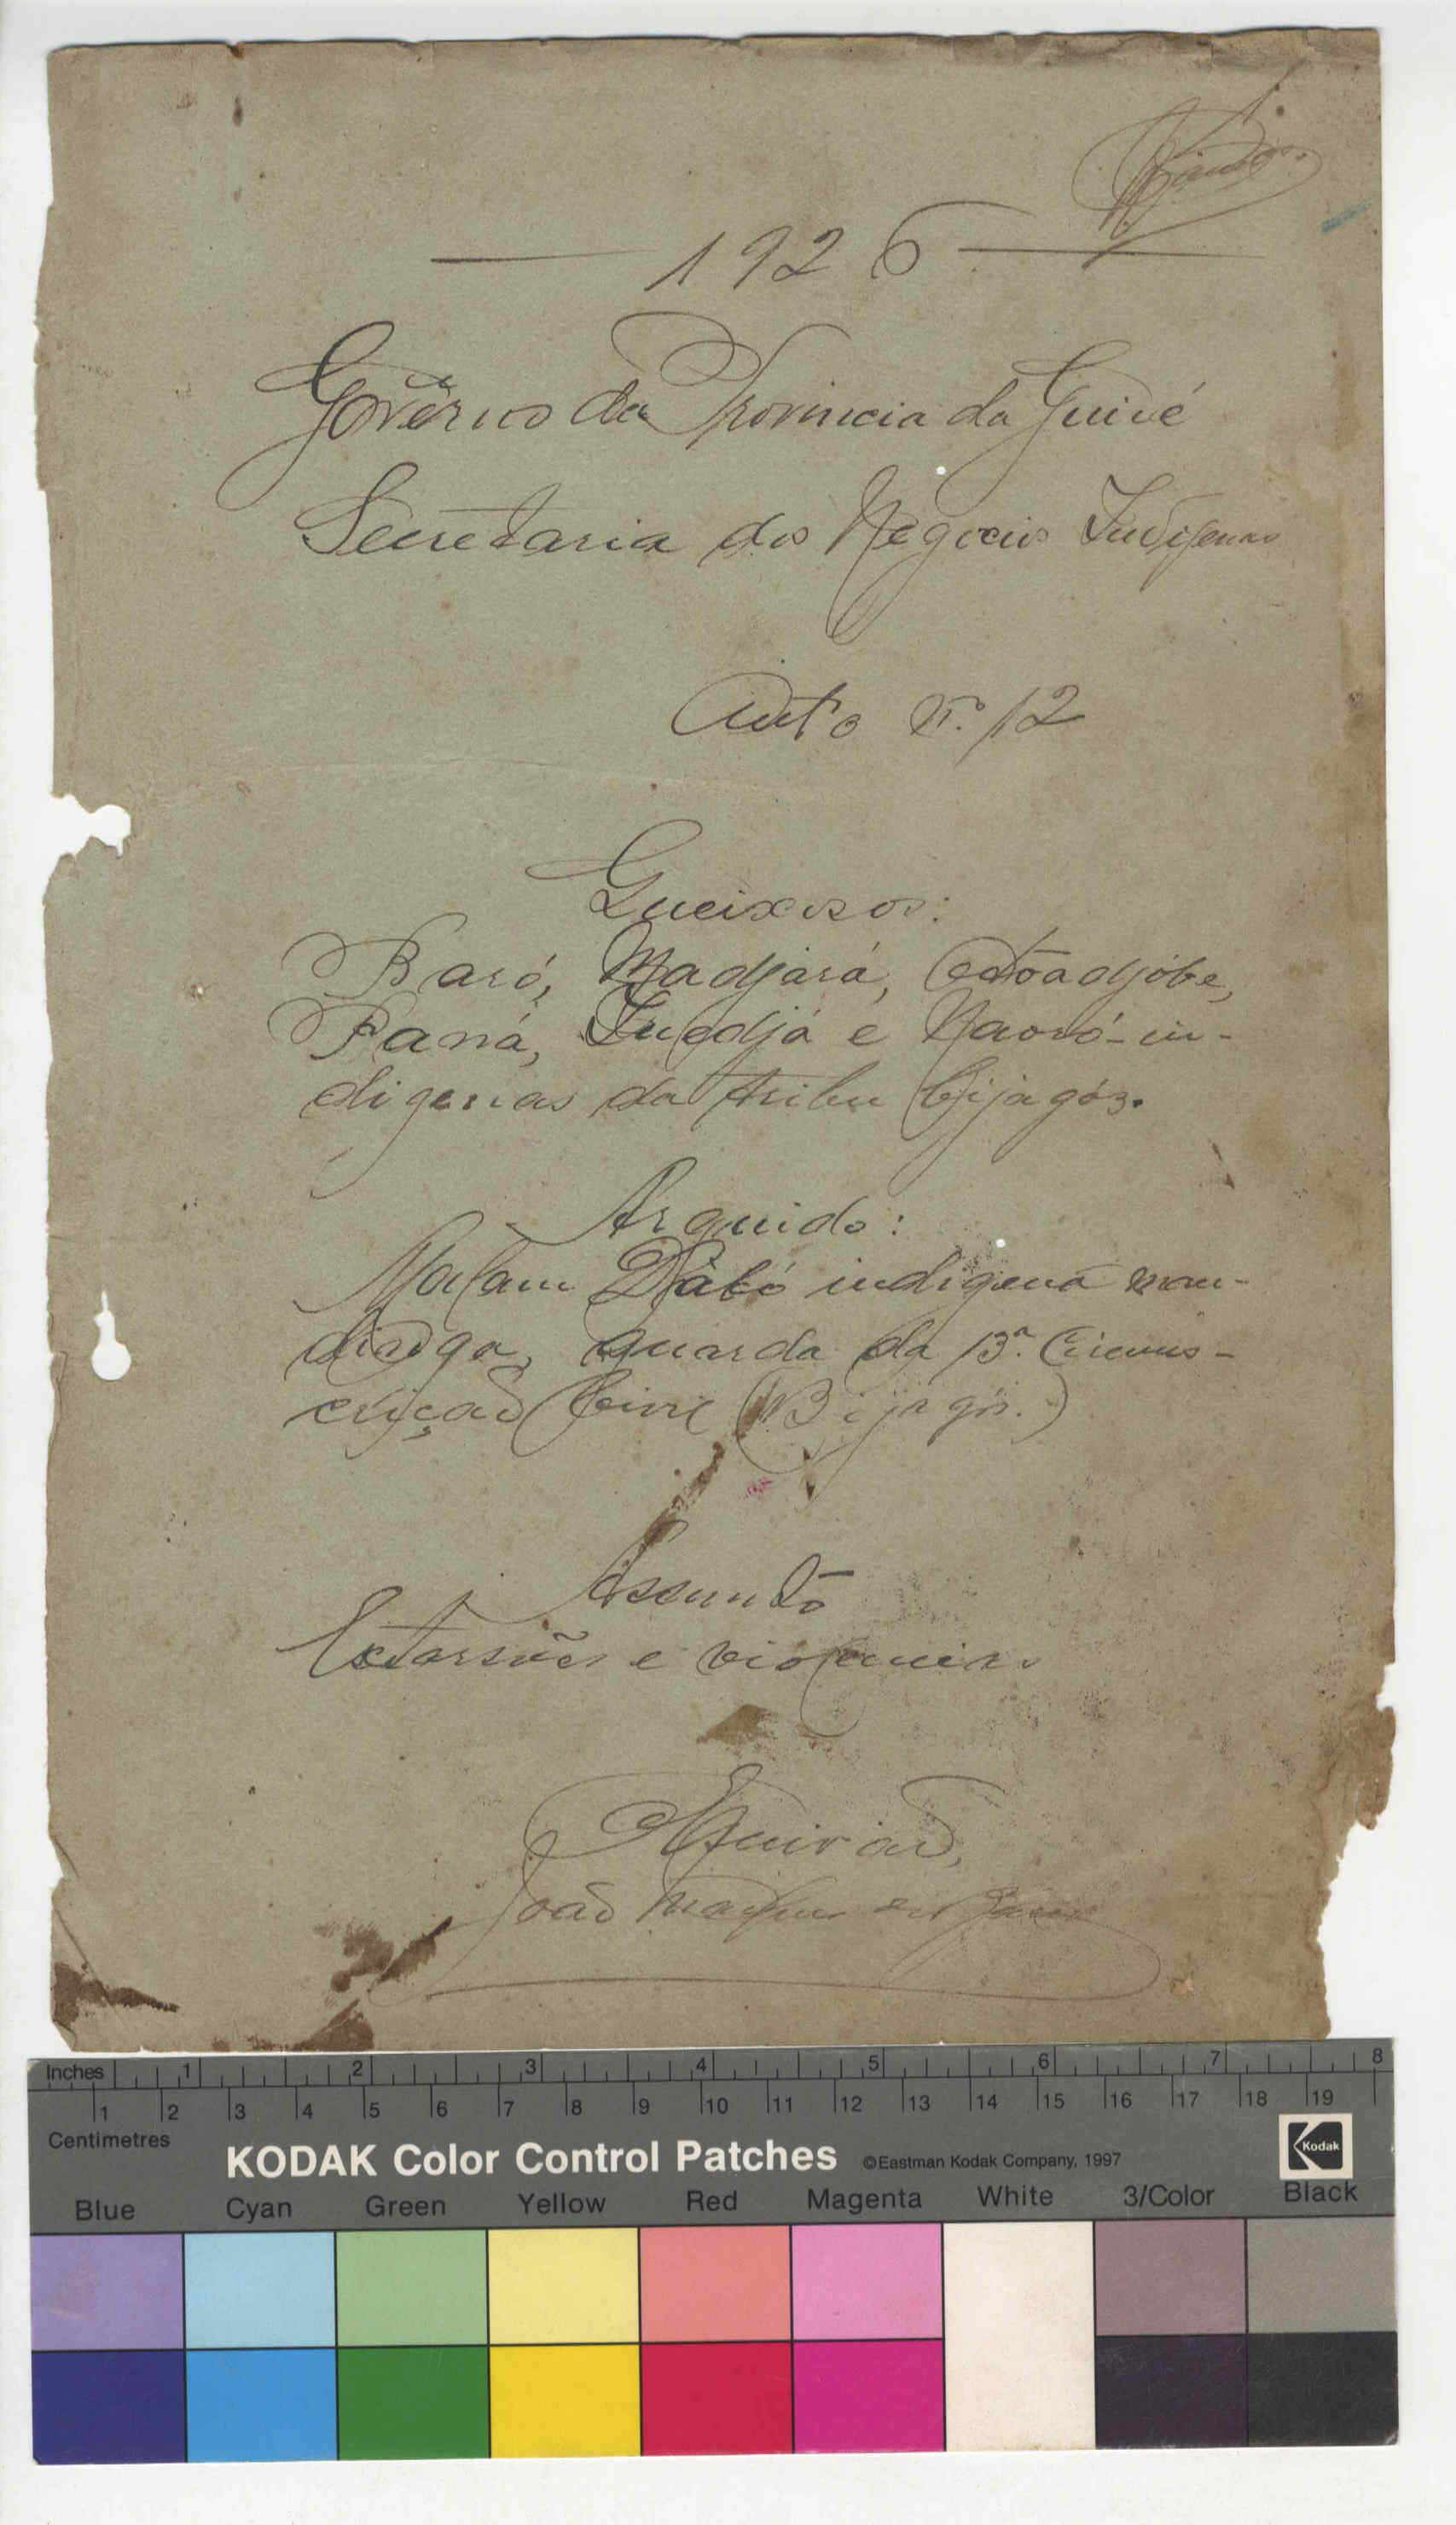 1926
Govêrno da Provincia da Guiné
Secretaria dos Negocios Indigenas
Auto N.º 12
Queixosos:
Baró, Madjará,
Paná, Inedjá e Naoró - in-
digenas da tribu bijagóz.
Arguido:
Malam Dabó indigena man-
dinga, guarda da 13.ª Circuns-
crição Civil (Bijagós.)
Assunto
Extorsões e violencias
Escrivão,
João
Inches 1 2 3 4 5 6 7 8
1 2 3 4 5 6 7 8 9 10 11 12 13 14 15 16 17 18 19
Centimetres
KODAK Color Control Patches ©Eastman Kodak Company, 1997 Kodak
Blue Cyan Green Yellow Red Magenta White 3/Color Black